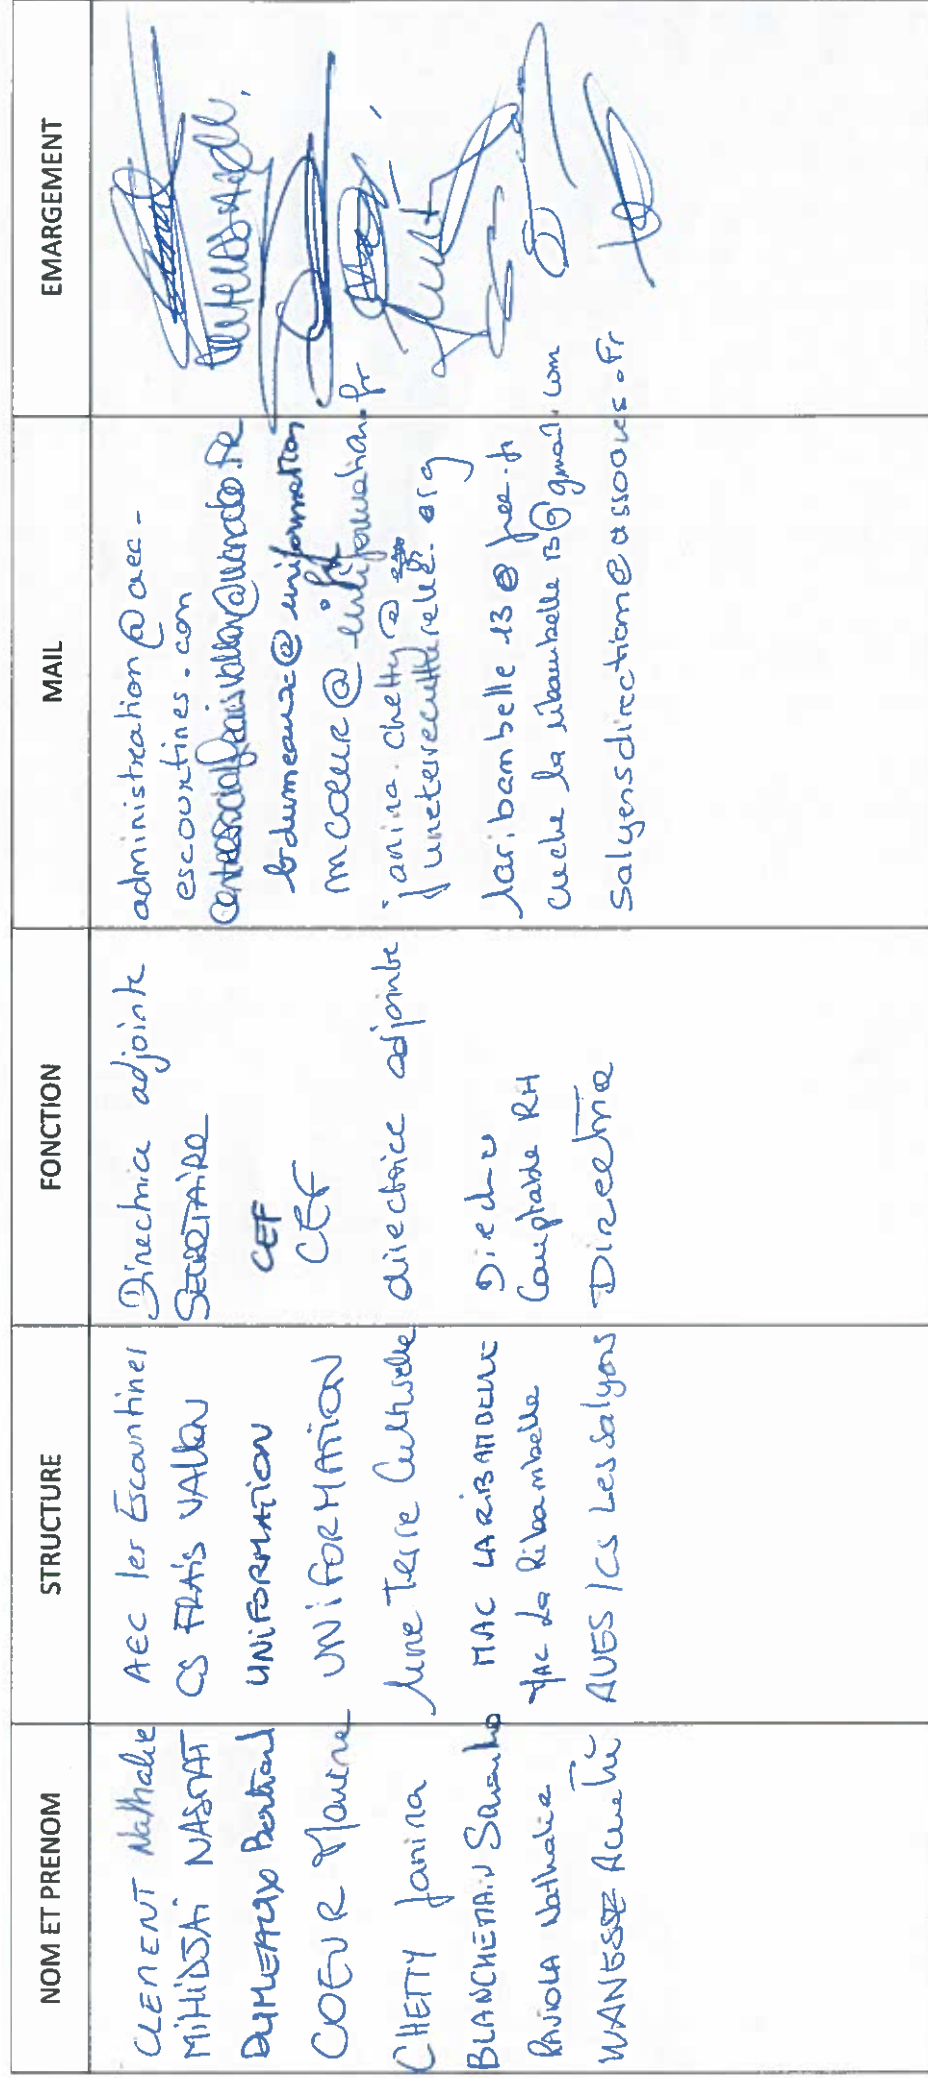 NOM ET PRENOM STRUCTURE FONCTION MAIL EMARGEMENT
CLEMENT Nathalie AEC les Escourtines Directrice adjointe administration@aec-
escourtines.com
MIHIDJAI NASMAT CS FRAIS VALLON SECRETAIRE
DUMEAUX Bertrand UNIFORMATION CEF bdumeaux@uniformation
.fr
COEUR Marine UNIFORMATION CEF mcoeur@uniformation.fr
CHETTY Janina Une Terre Culturelle directrice adjointe janina.chetty@
uneterreculturelle.org
BLANCHEMAIN MAC LARIBAMBELLE laribambelle13@free.fr
PAJOLA Nathalie MAC La Ribambelle Comptable RH creche la ribambelle 13@gmail.com
AVES/CS Les Salyens Directrice salyensdirection@assoaves.fr